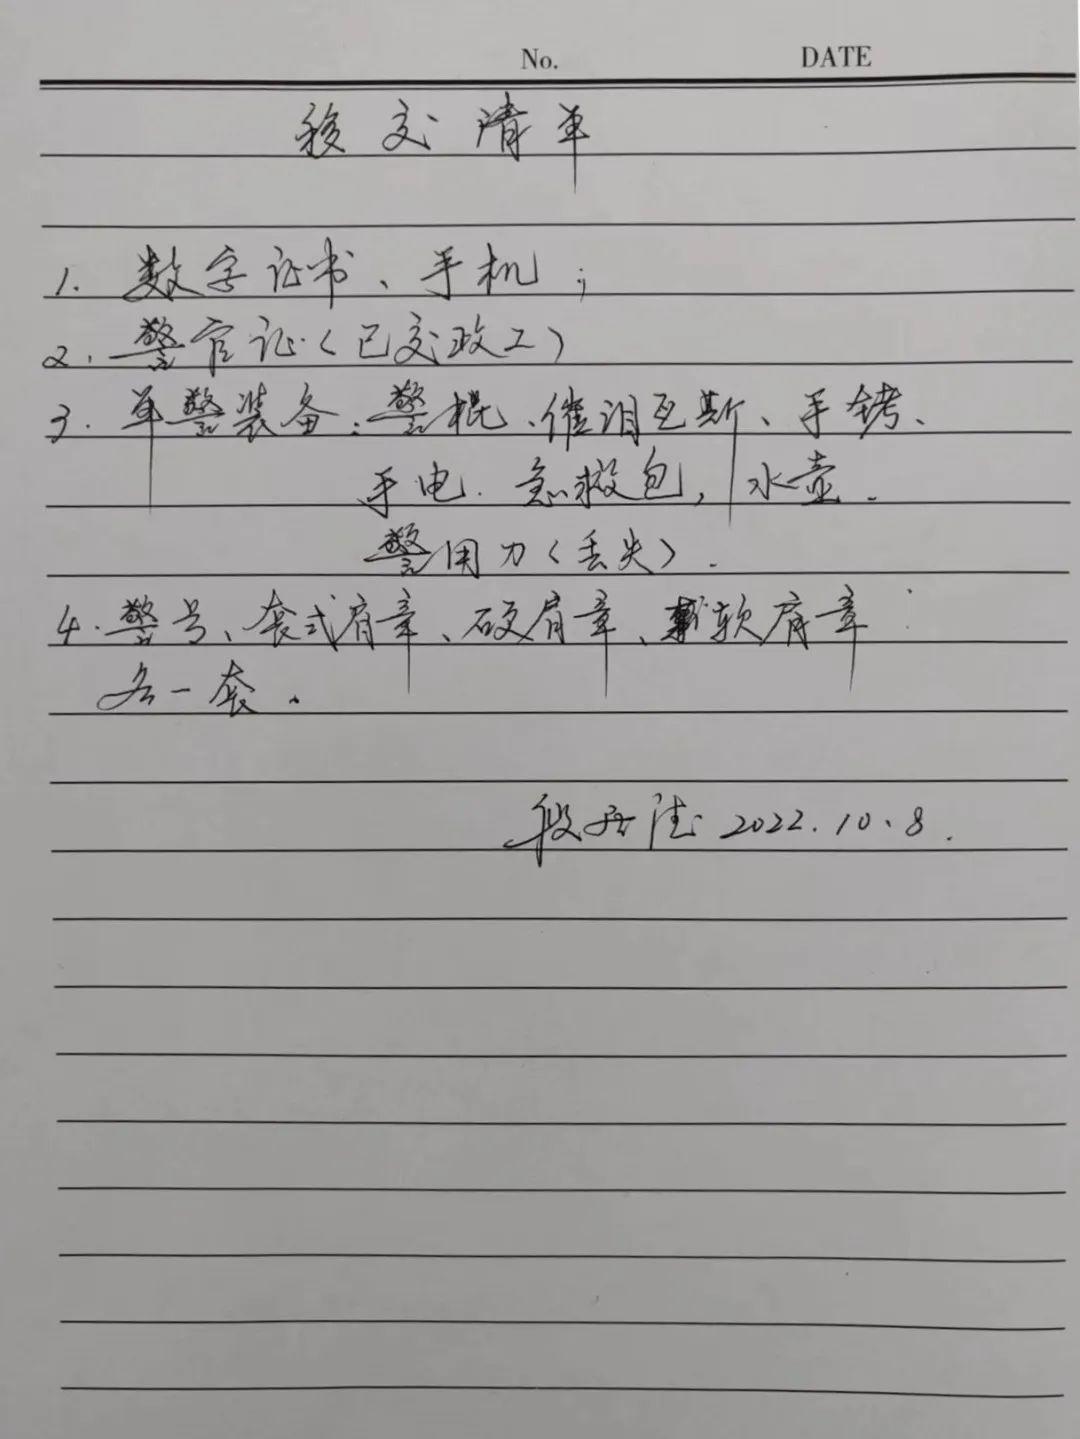 No. DATE
移交清单
1. 数字证书、手机；
2. 警官证（已交政工）
3. 单警装备：警棍、催泪瓦斯、手铐、
手电. 急救包, 水壶.
警用刀（丢失）.
4. 警号、套式肩章、硬肩章、软肩章
各一套.
段 2022.10.8.